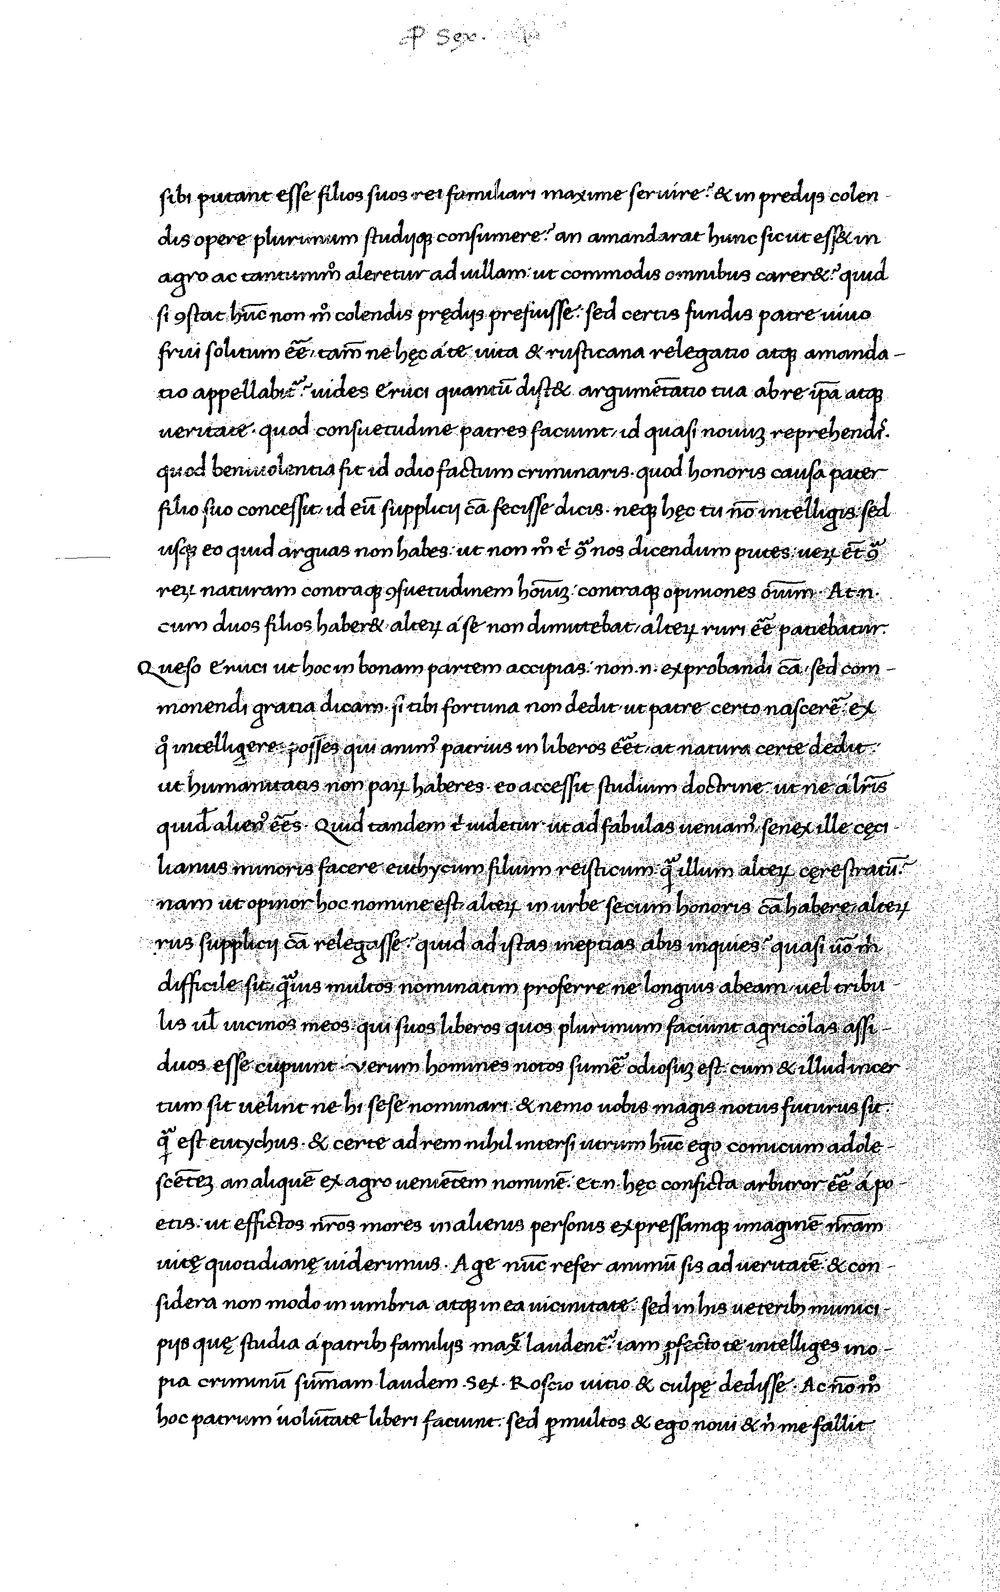 P Sex.
sibi putant esse filios suos rei familiari maxime seruire? & in predijs colen-
dis opere plurimum studijq; consumere? an amandarat hunc sic ut ess& in
agro ac tantummͦ aleretur ad uillam: ut commodis omnibus carer&? quid
si ꝯstat hūc non mͦ colendis prędijs prefuisse: sed certis fundis patre uiuo
frui solitum eē̃: tam̄ ne hęc á te uita & rusticana relegatio atq; amanda-
tio appellabit᷑? uides Eruci quantū dist& argumētatio tua ab re ip̄a atq;
ueritate. quod consuetudine patres faciunt, id quasi nouuꝫ reprehendis.
quod beniuolentia fit id odio factum criminaris. quod honoris causa pater
filio suo concessit, id eū supplicij cā fecisse dicis. neq; hęc tu nō intelligis sed
usq; eo quid arguas non habes: ut non mͦ t' ꝯ̃ nos dicendum putes: ueꝝ et̄ ꝯ̃
reꝝ naturam contraq; ꝯsuetudinem hoīuꝫ: contraq; opiniones oīum. At .n.
cum duos filios haber& alteꝝ á se non dimittebat, alteꝝ ruri eē̃ patiebatur.
Queso Eruci ut hoc in bonam partem accipias: non .n. exprobandi cā. sed com-
monendi gratia dicam. si tibi fortuna non dedit, ut patre certo nascerē̃, ex
qͦ intelligere posses qui animꝰ patrius in liberos eēt̃, at natura certe dedit:
ut humanitatis non paꝝ haberes. eo accessit studium doctrine: ut ne á lr̄is
quid̄ alienꝰ eēs̃. Quid tandem t' uidetur ut ad fabulas ueniamꝰ, senex ille cęci-
lianus minoris facere euthycum filium reisticum qͣ̃ illum alteꝝ cęrestratū?
nam ut opinor hoc nomine est. alteꝝ in urbe secum honoris cā habere, alteꝝ
rus supplicij cā relegasse? quid ad istas ineptias abis inquies? quasi uͦo m'
difficile sit, qͣ̃uis multos nominatim proferre ne longius abeam, uel tribu-
lis ul̄ uicinos meos. qui suos liberos quos plurimum faciunt agricolas assi-
duos esse cupiunt. Verum homines notos sumē̃ odiosuꝫ est. cum & illud incer
tum sit uelint ne hi sese nominari. & nemo uobis magis notus futurus sit.
qͣ̃ est eutychus. & certe ad rem nihil intersi utrum hūc ego comicum adole-
scēteꝫ an aliquē ex agro ueniētem nominē. et .n. hęc conficta arbitror eē̃ á po-
etis: ut effictos nr̄os mores in alienis personis expressamq; imaginē nr̄am
uitę quotidianę uiderimus. Age nūc refer animū sis ad ueritatē & con-
sidera non modo in umbria atq; in ea uicinitate. sed in his ueterib; munici-
pijs quę studia á patrib; familijs maxͤ laudent᷑? iam ꝓfecto te intelliges ino-
pia criminū sum̄am laudem .Sex. Roscio uitio & culpę dedisse. Ac nō mͦ
hoc patrum uolūtate liberi faciunt: sed ꝑmultos & ego noui & n' me fallit